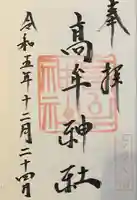 奉拝
高牟神社
令和五年十二月二十四日